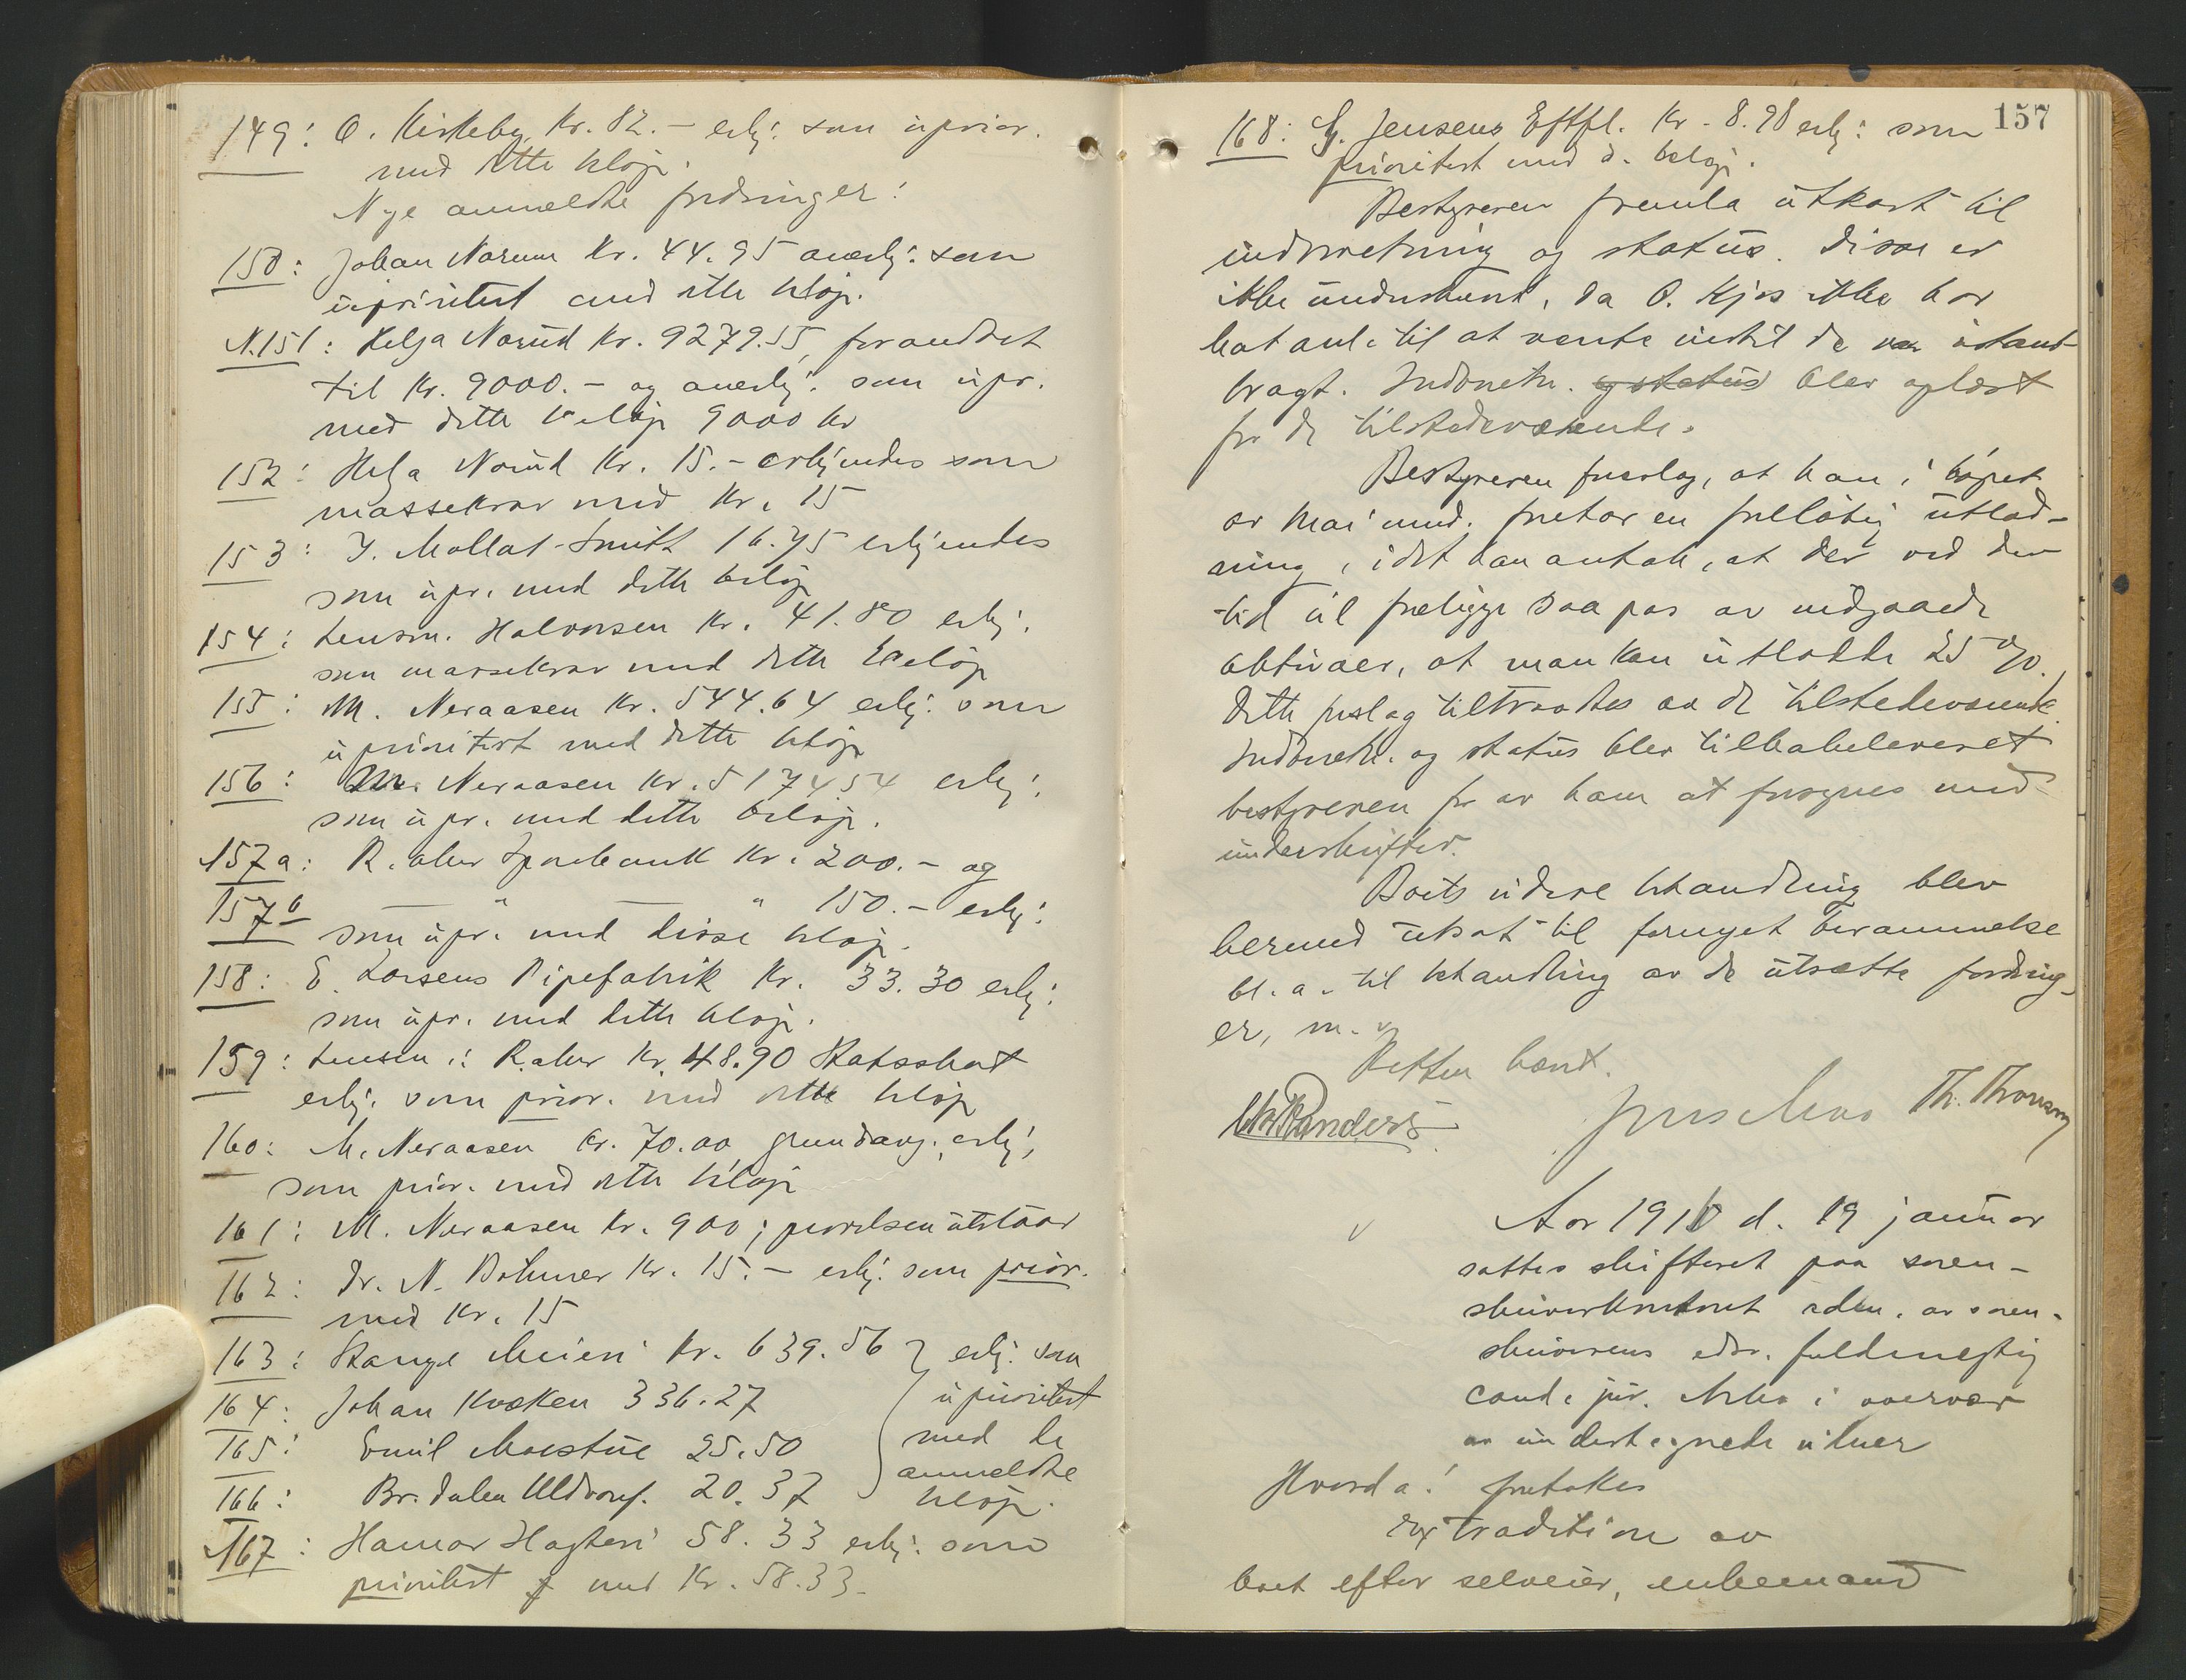 149: O. Kirkeby Kr. 82.- erkj: som uprior.
med dette beløp.
Nye anmeldte fordringer:
150: Johan Norum Kr. 44.95 anerkj: som
uprioritert med dette beløp.
N.151: Helga Norud Kr. 9279.55, forandret
til Kr. 9000.- og anerkj. som upr.
med dette beløp 9000 kr
152: Helga Norud Kr. 15.- erkjendes som
massekrav med Kr. 15
153: J. Mollat-Smith 16.75 erkjendes
som upr. med dette beløp
154: Lensm. Halvorsen Kr. 41.80 erkj.
som massekrav med dette beløp
155: M. Neraasen Kr. 544.64 erkj: som
uprioritert med dette beløp
156: M. Neraasen Kr. 5174 54 erkj:
som upr. med dette beløp.
157a: R.aker Sparebank Kr. 200.- og
157b — " — " 150.- erkj:
som upr. med disse beløp.
158: E. Larsens Pipefabrik Kr. 33.30 erkj:
som upr. med dette beløp.
159: Lensm. i R.aker Kr. 48.90 Statsskat
erkj. som prior. med dette beløp
160: M. Neraasen Kr. 70.00 grundavg. erkj;
som prior. med dette beløp
161: M. Neraasen Kr. 900; prøvelsen utstaar
162: Dr. N. Bohmer Kr. 15.- erkj. som prior.
med Kr. 15
163: Stange Meieri Kr. 639.56 } erkj. som
164: Johan Kvæken 336.27 uprioritert
165: Emil Moestue 25.50 med de
166: Br. Dalen Uldvaref. 20.37 anmeldte
beløp.
167: Hamar Hagteri 58.33 erkj: som
prioritert med Kr. 58.33.
157
168: G. Jensens Eftfl. Kr. 8.98 erkj: som
prioritert med d. beløp.
Bestyreren fremla utkast til
indberetning og status. Disse er
ikke underskrevet, da O. Kjos ikke har
hat anl. til at vente indtil de var istand-
bragt. Indberetn. og status blev oplæst
for de tilstedeværende.
Bestyreren foreslog, at han i løpet
av Mai mnd. foretar en foreløbig utlod-
ning, idet han antok, at der ved den
tid vil foreligge saa pas av indgaaede
aktiver, at man kan utlodde 25 %.
Dette forslag tiltraadtes av de tilstedeværende.
Indberetn. og status blev tilbakeleveret
bestyreren for av ham at forsynes med
underskrifter.
Boets videre behandling blev
hermed utsat til fornyet berammelse
bl. a. til behandling av de utsatte fordring-
er, m. v.
Retten hævet.
Jens Moe Th. Thronsen
Aar 1918 d. 19 januar
sattes skifteret paa soren-
skriverkontoret adm. av soren-
skriverens edsv. fuldmegtig
cand. jur. i overvær
av undertegnede vidner
Hvorda: foretokes
extradition av
boet efter selveier, enkemand